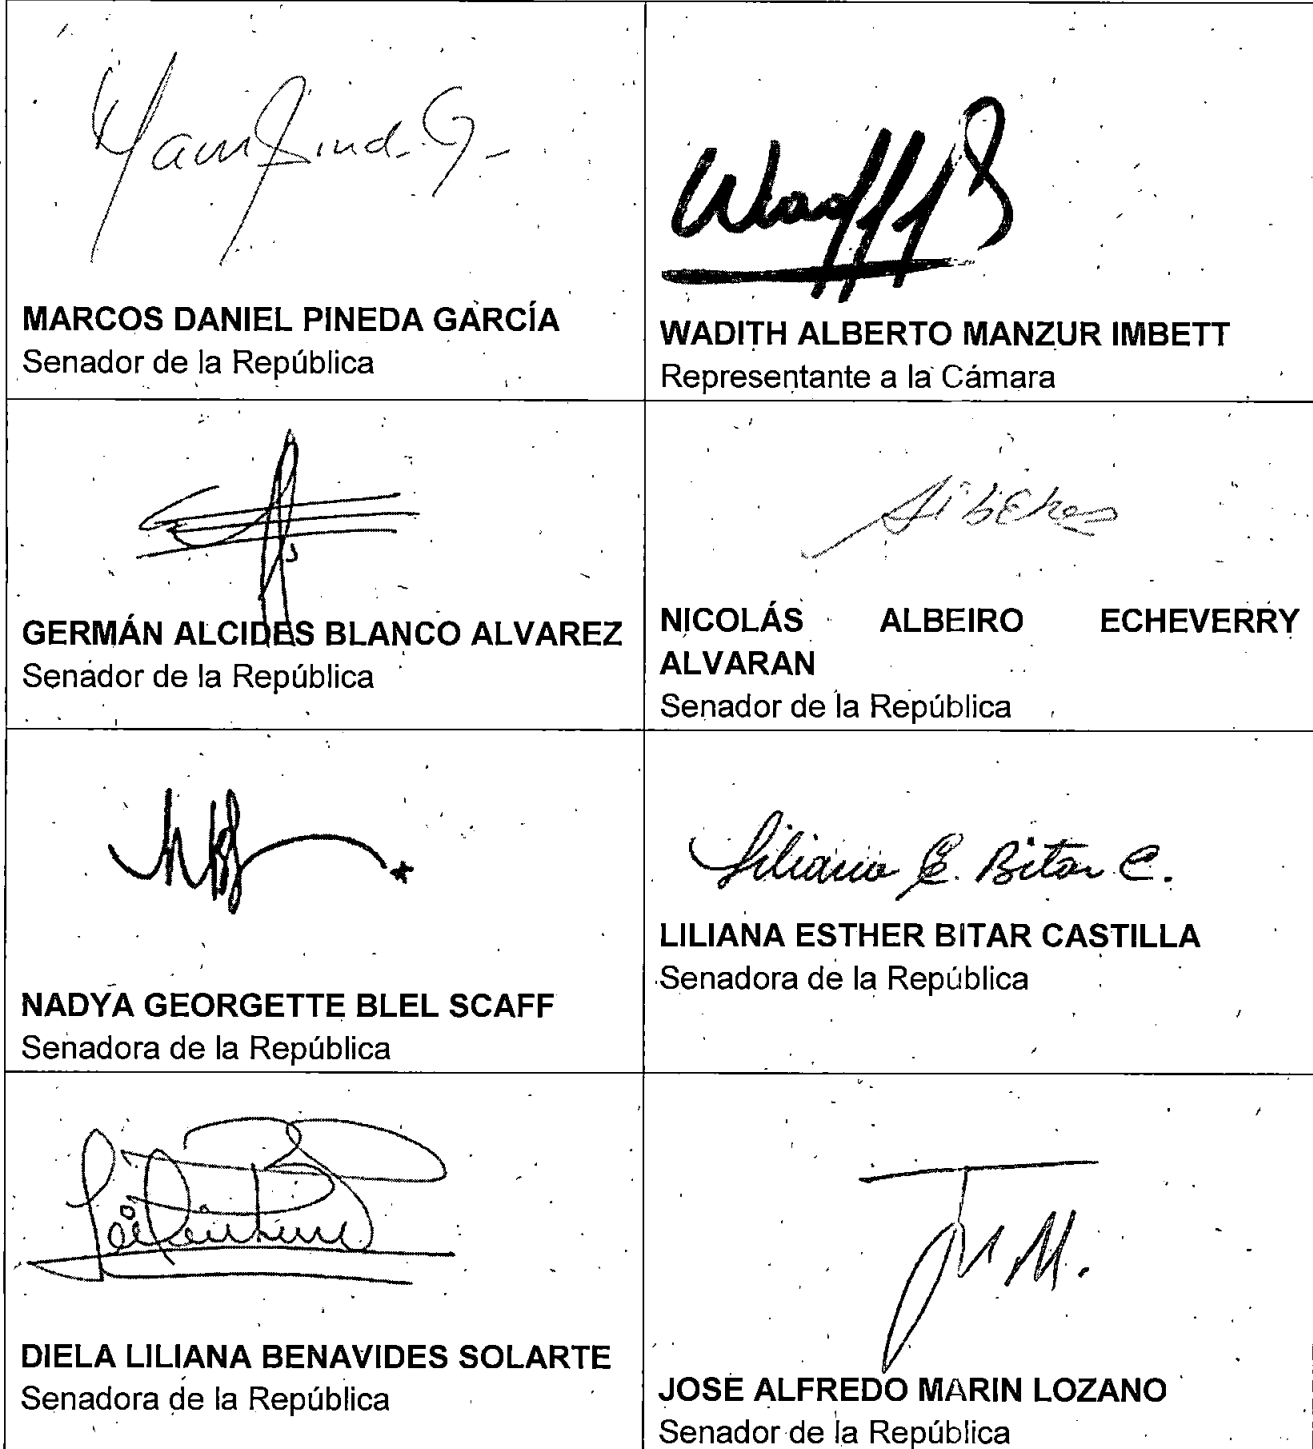 MARCOS DANIEL PINEDA GARCÍA
Senador de la República
WADITH ALBERTO MANZUR IMBETT
Representante a la Cámara
GERMÁN ALCIDES BLANCO ALVAREZ
Senador de la República
NICOLÁS ALBEIRO ECHEVERRY
ALVARAN
Senador de la República
NADYA GEORGETTE BLEL SCAFF
Senadora de la República
Liliana E. Bitar C.
LILIANA ESTHER BITAR CASTILLA
Senadora de la República
DIELA LILIANA BENAVIDES SOLARTE
Senadora de la República
JOSE ALFREDO MARIN LOZANO
Senador de la República